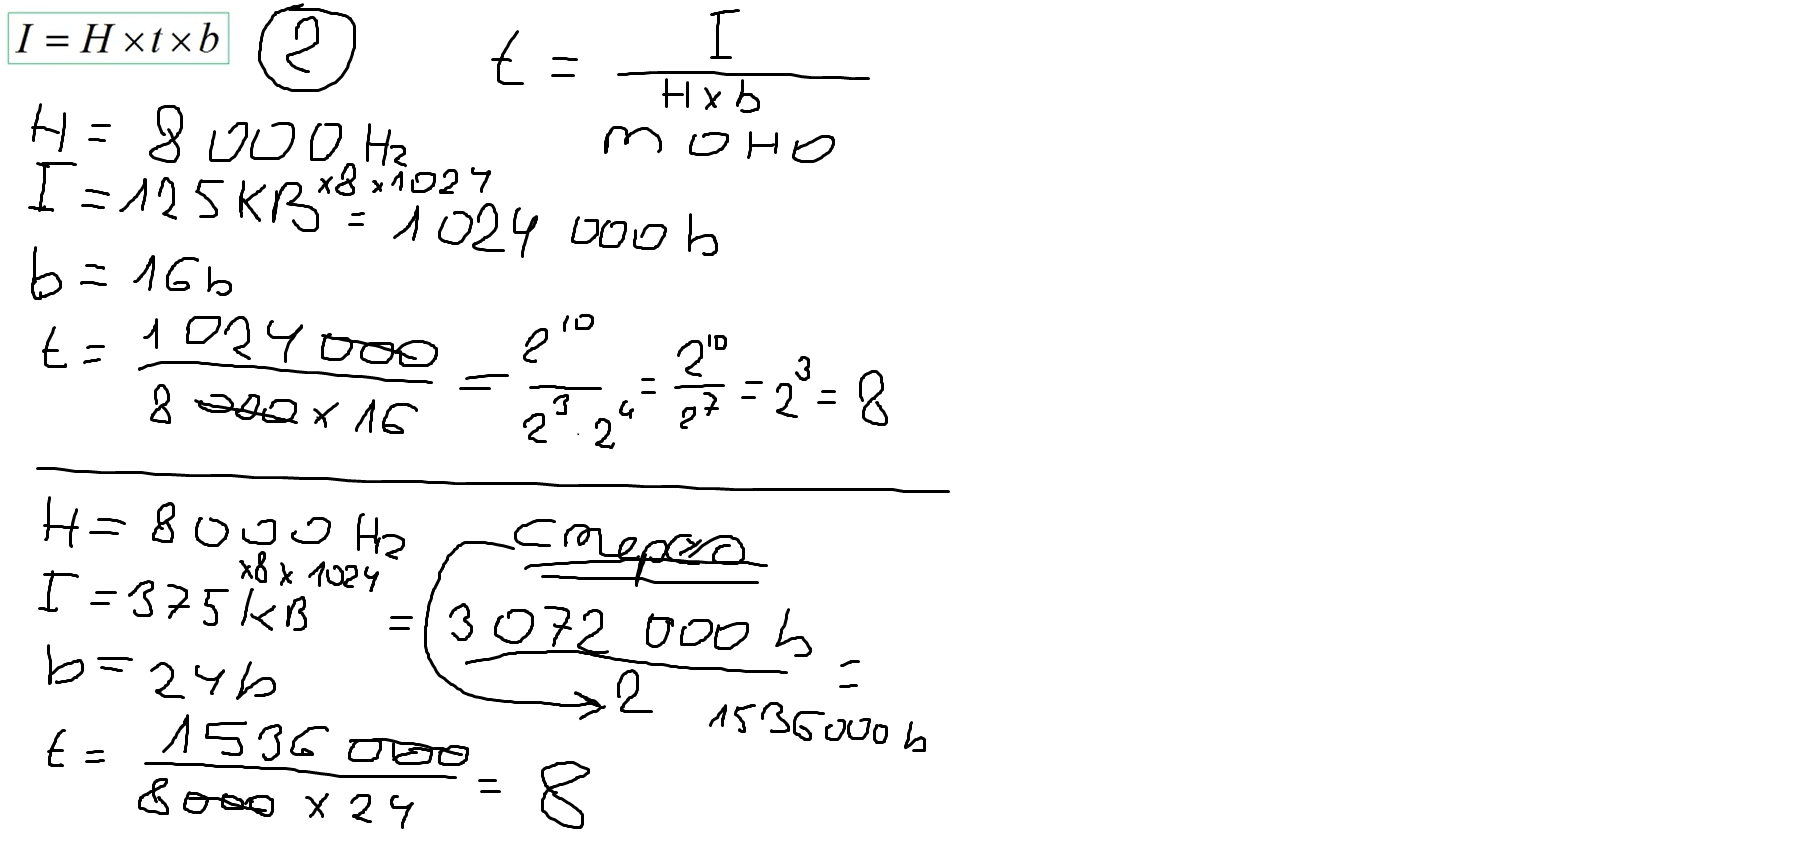 I = H × t × b
2
t = I / (H × b)
моно
H = 8 000 Hz
I = 125 KB ×8 ×1024 = 1 024 000 b
b = 16b
t = 1 024 000 / (8 000 × 16) = 2^10 / (2^3 · 2^4) = 2^10 / 2^7 = 2^3 = 8
H = 8 000 Hz
стерео
I = 375 KB ×8 × 1024 = 3 072 000 b / 2 = 1536 000 b
b = 24b
t = 1536 000 / (8 000 × 24) = 8